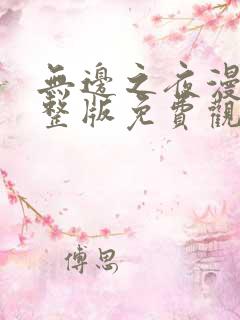 無邊之夜漫
整版免費觀
傅思